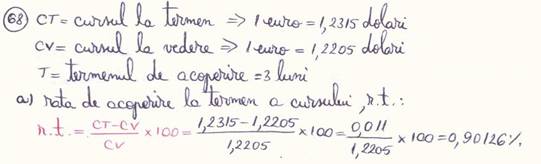 68 CT = cursul la termen => 1 euro = 1,2315 dolari
CV = cursul la vedere => 1 euro = 1,2205 dolari
T = termenul de acoperire = 3 luni
a) rata de acoperire la termen a cursului, r.t.:
r.t. = (CT-CV)/CV × 100 = (1,2315 - 1,2205)/1,2205 × 100 = 0,011/1,2205 × 100 = 0,90126%